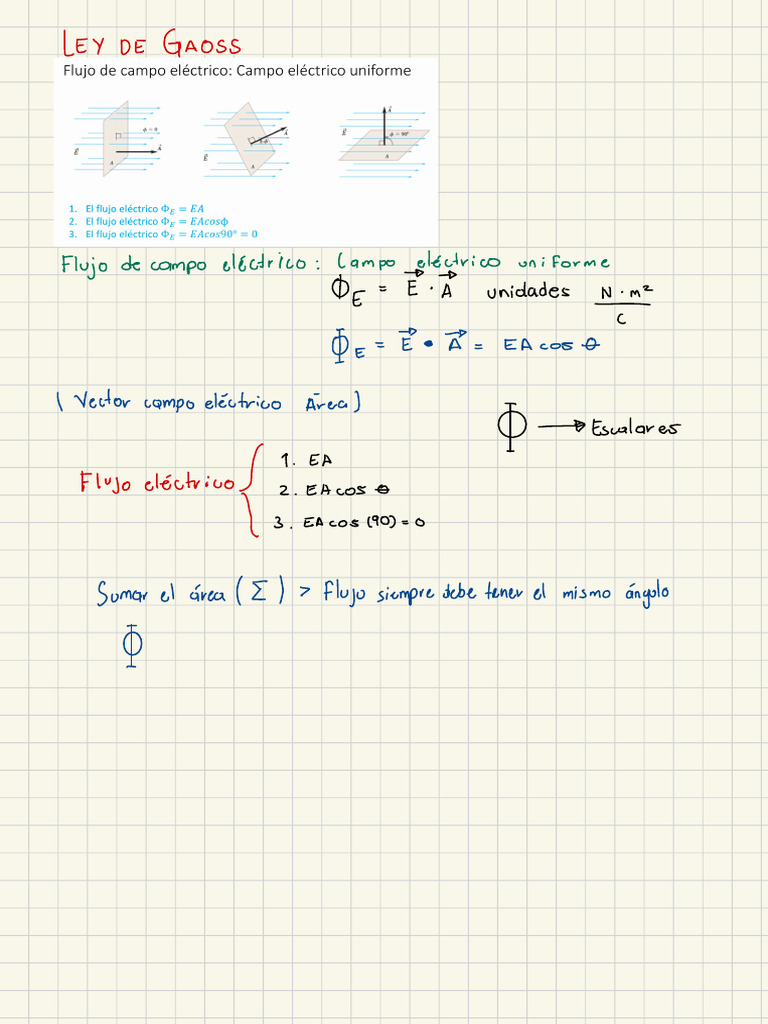 LEY DE GAOSS
Flujo de campo eléctrico: Campo eléctrico uniforme
ϕ = 0
E⃗
A⃗
A
E⃗
A⃗
ϕ
A
A⃗
E⃗
ϕ = 90°
A
1. El flujo eléctrico Φ_E = EA
2. El flujo eléctrico Φ_E = EAcosϕ
3. El flujo eléctrico Φ_E = EAcos90° = 0
Flujo de campo eléctrico: Campo eléctrico uniforme
Φ_E = E⃗ · A⃗ unidades N·m²/C
Φ_E = E⃗ • A⃗ = EA cos θ
(Vector campo eléctrico Área)
Φ → Escalares
Flujo eléctrico
1. EA
2. EA cos θ
3. EA cos (90) = 0
Sumar el área (Σ) > Flujo siempre debe tener el mismo ángulo
Φ